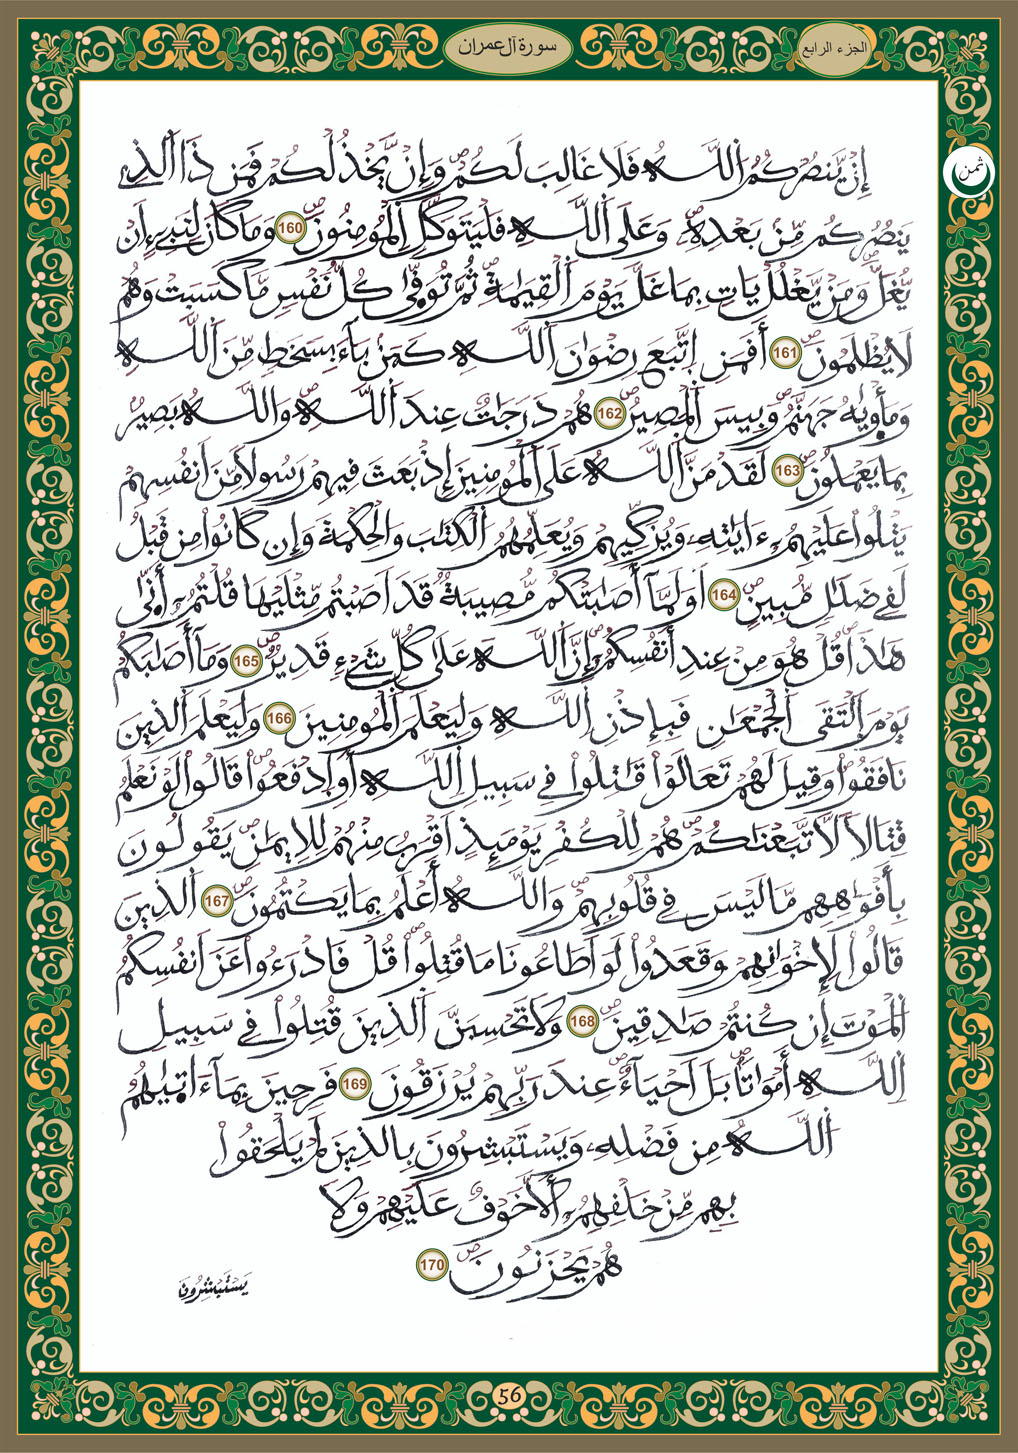 سورة آل عمران
الجزء الرابع
ثمن
إِنْ يَّنصُرْكُمُ اُللَّهُ فَلَا غَالِبَ لَكُمْ وَإِنْ يَّخْذُلْكُمْ فَمَن ذَا اَلذِے
يَنصُرُكُم مِّنۢ بَعْدِهِۦ وَعَلَى اَللَّهِ فَلْيَتَوَكَّلِ اِلْمُومِنُونَ 160 وَمَا كَانَ لِنَبِےٓءٍ اَنْ
يُّغَلَّ وَمَنْ يَّغْلُلْ يَاتِ بِمَا غَلَّ يَوْمَ اَلْقِيَٰمَةِ ثُمَّ تُوَفّ۪ىٰ كُلُّ نَفْسٍ مَّا كَسَبَتْ وَهُمْ
لَا يُظْلَمُونَ 161 أَفَمَنِ اِتَّبَعَ رِضْوَٰنَ اَللَّهِ كَمَنۢ بَآءَ بِسَخَطٍ مِّنَ اَللَّهِ
وَمَأْو۪يٰهُ جَهَنَّمُ وَبِيسَ اَلْمَصِيرُ 162 هُمْ دَرَجَٰتٌ عِندَ اَللَّهِ وَاللَّهُ بَصِيرٌۢ
بِمَا يَعْمَلُونَ 163 لَقَدْ مَنَّ اَللَّهُ عَلَى اَلْمُومِنِينَ إِذْ بَعَثَ فِيهِمْ رَسُولًا مِّنَ اَنفُسِهِمْ
يَتْلُواْ عَلَيْهِمُۥٓ ءَايَٰتِهِۦ وَيُزَكِّيهِمْ وَيُعَلِّمُهُمُ اُلْكِتَٰبَ وَالْحِكْمَةَ وَإِن كَانُواْ مِن قَبْلُ
لَفِے ضَلَٰلٍ مُّبِينٍ 164 اَوَلَمَّآ أَصَٰبَتْكُم مُّصِيبَةٌ قَدَ اَصَبْتُم مِّثْلَيْهَا قُلْتُمُۥٓ أَنّ۪ىٰ
هَٰذَا قُلْ هُوَ مِنْ عِندِ أَنفُسِكُمُۥٓ إِنَّ اَللَّهَ عَلَىٰ كُلِّ شَےْءٍ قَدِيرٌ 165 وَمَآ أَصَٰبَكُمْ
يَوْمَ اَلْتَقَى اَلْجَمْعَٰنِ فَبِإِذْنِ اِللَّهِ وَلِيَعْلَمَ اَلْمُومِنِينَ 166 وَلِيَعْلَمَ اَلذِينَ
نَافَقُواْ وَقِيلَ لَهُمْ تَعَالَوْاْ قَٰتِلُواْ فِے سَبِيلِ اِللَّهِ أَوِ اِدْفَعُواْ قَالُواْ لَوْ نَعْلَمُ
قِتَالًا لَّاتَّبَعْنَٰكُمْ هُمْ لِلْكُفْرِ يَوْمَئِذٍ اَقْرَبُ مِنْهُمْ لِلِايمَٰنِ يَقُولُونَ
بِأَفْوَٰهِهِم مَّا لَيْسَ فِے قُلُوبِهِمْ وَاللَّهُ أَعْلَمُ بِمَا يَكْتُمُونَ 167 اَلذِينَ
قَالُواْ لِإِخْوَٰنِهِمْ وَقَعَدُواْ لَوَ اَطَاعُونَا مَا قُتِلُواْ قُلْ فَادْرَءُواْ عَنَ اَنفُسِكُمُ
اُلْمَوْتَ إِن كُنتُمْ صَٰدِقِينَ 168 وَلَا تَحْسِبَنَّ اَلذِينَ قُتِلُواْ فِے سَبِيلِ
اِللَّهِ أَمْوَٰتًا بَلَ اَحْيَآءٌ عِندَ رَبِّهِمْ يُرْزَقُونَ 169 فَرِحِينَ بِمَآ ءَات۪يٰهُمُ
اُللَّهُ مِن فَضْلِهِۦ وَيَسْتَبْشِرُونَ بِالذِينَ لَمْ يَلْحَقُواْ
بِهِم مِّنْ خَلْفِهِمُۥٓ أَلَّا خَوْفٌ عَلَيْهِمْ وَلَا
هُمْ يَحْزَنُونَ 170
يَسْتَبْشِرُونَ
56